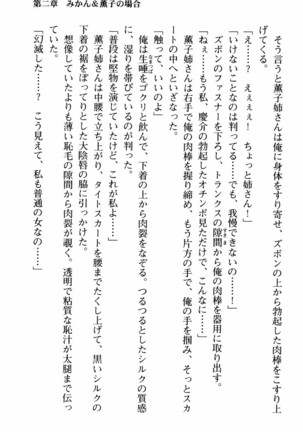 第二章　みかん＆薫子の場合
そう言うと薫子姉さんは俺に身をすり寄せ、ズボンの上から勃起した肉棒をこすり上
げてくる。
「え……？　えぇぇぇ！　ちょっと姉さん！」
「いけないことなのは判ってる……でも、我慢できないの………！」
ズボンのファスナーを下ろし、トランクスの隙間から俺の肉棒を器用に取り出す。
「ねぇ……もう私、慶介の勃起したオチンポ見ただけで、こんなに……」
薫子姉さんは右手で俺の肉棒を握り締め、もう片方の手で、俺の手を掴み、そっとスカ
ートの中へといざなった。
「触って、いいのよ……」
俺は生唾をゴクリと飲んで、下着の上から肉裂をなぞる。つるつるとしたシルクの質感
に、湿りを帯びているのが判った。
「普段は堅物を演じていたけど、これが私よ……」
薫子姉さんは中腰で立ち上がり、タイトスカートを腰までたくし上げて、黒いシルクの
下着の裾をぽってりとした大陰唇の脇に引っかけた。
想像していたよりも薄い恥毛の隙間から肉裂が覗く。透明で粘質な恥汁が太腿まで伝っ
ていた。
「幻滅した……？　こう見えて、私も普通の女なの……」